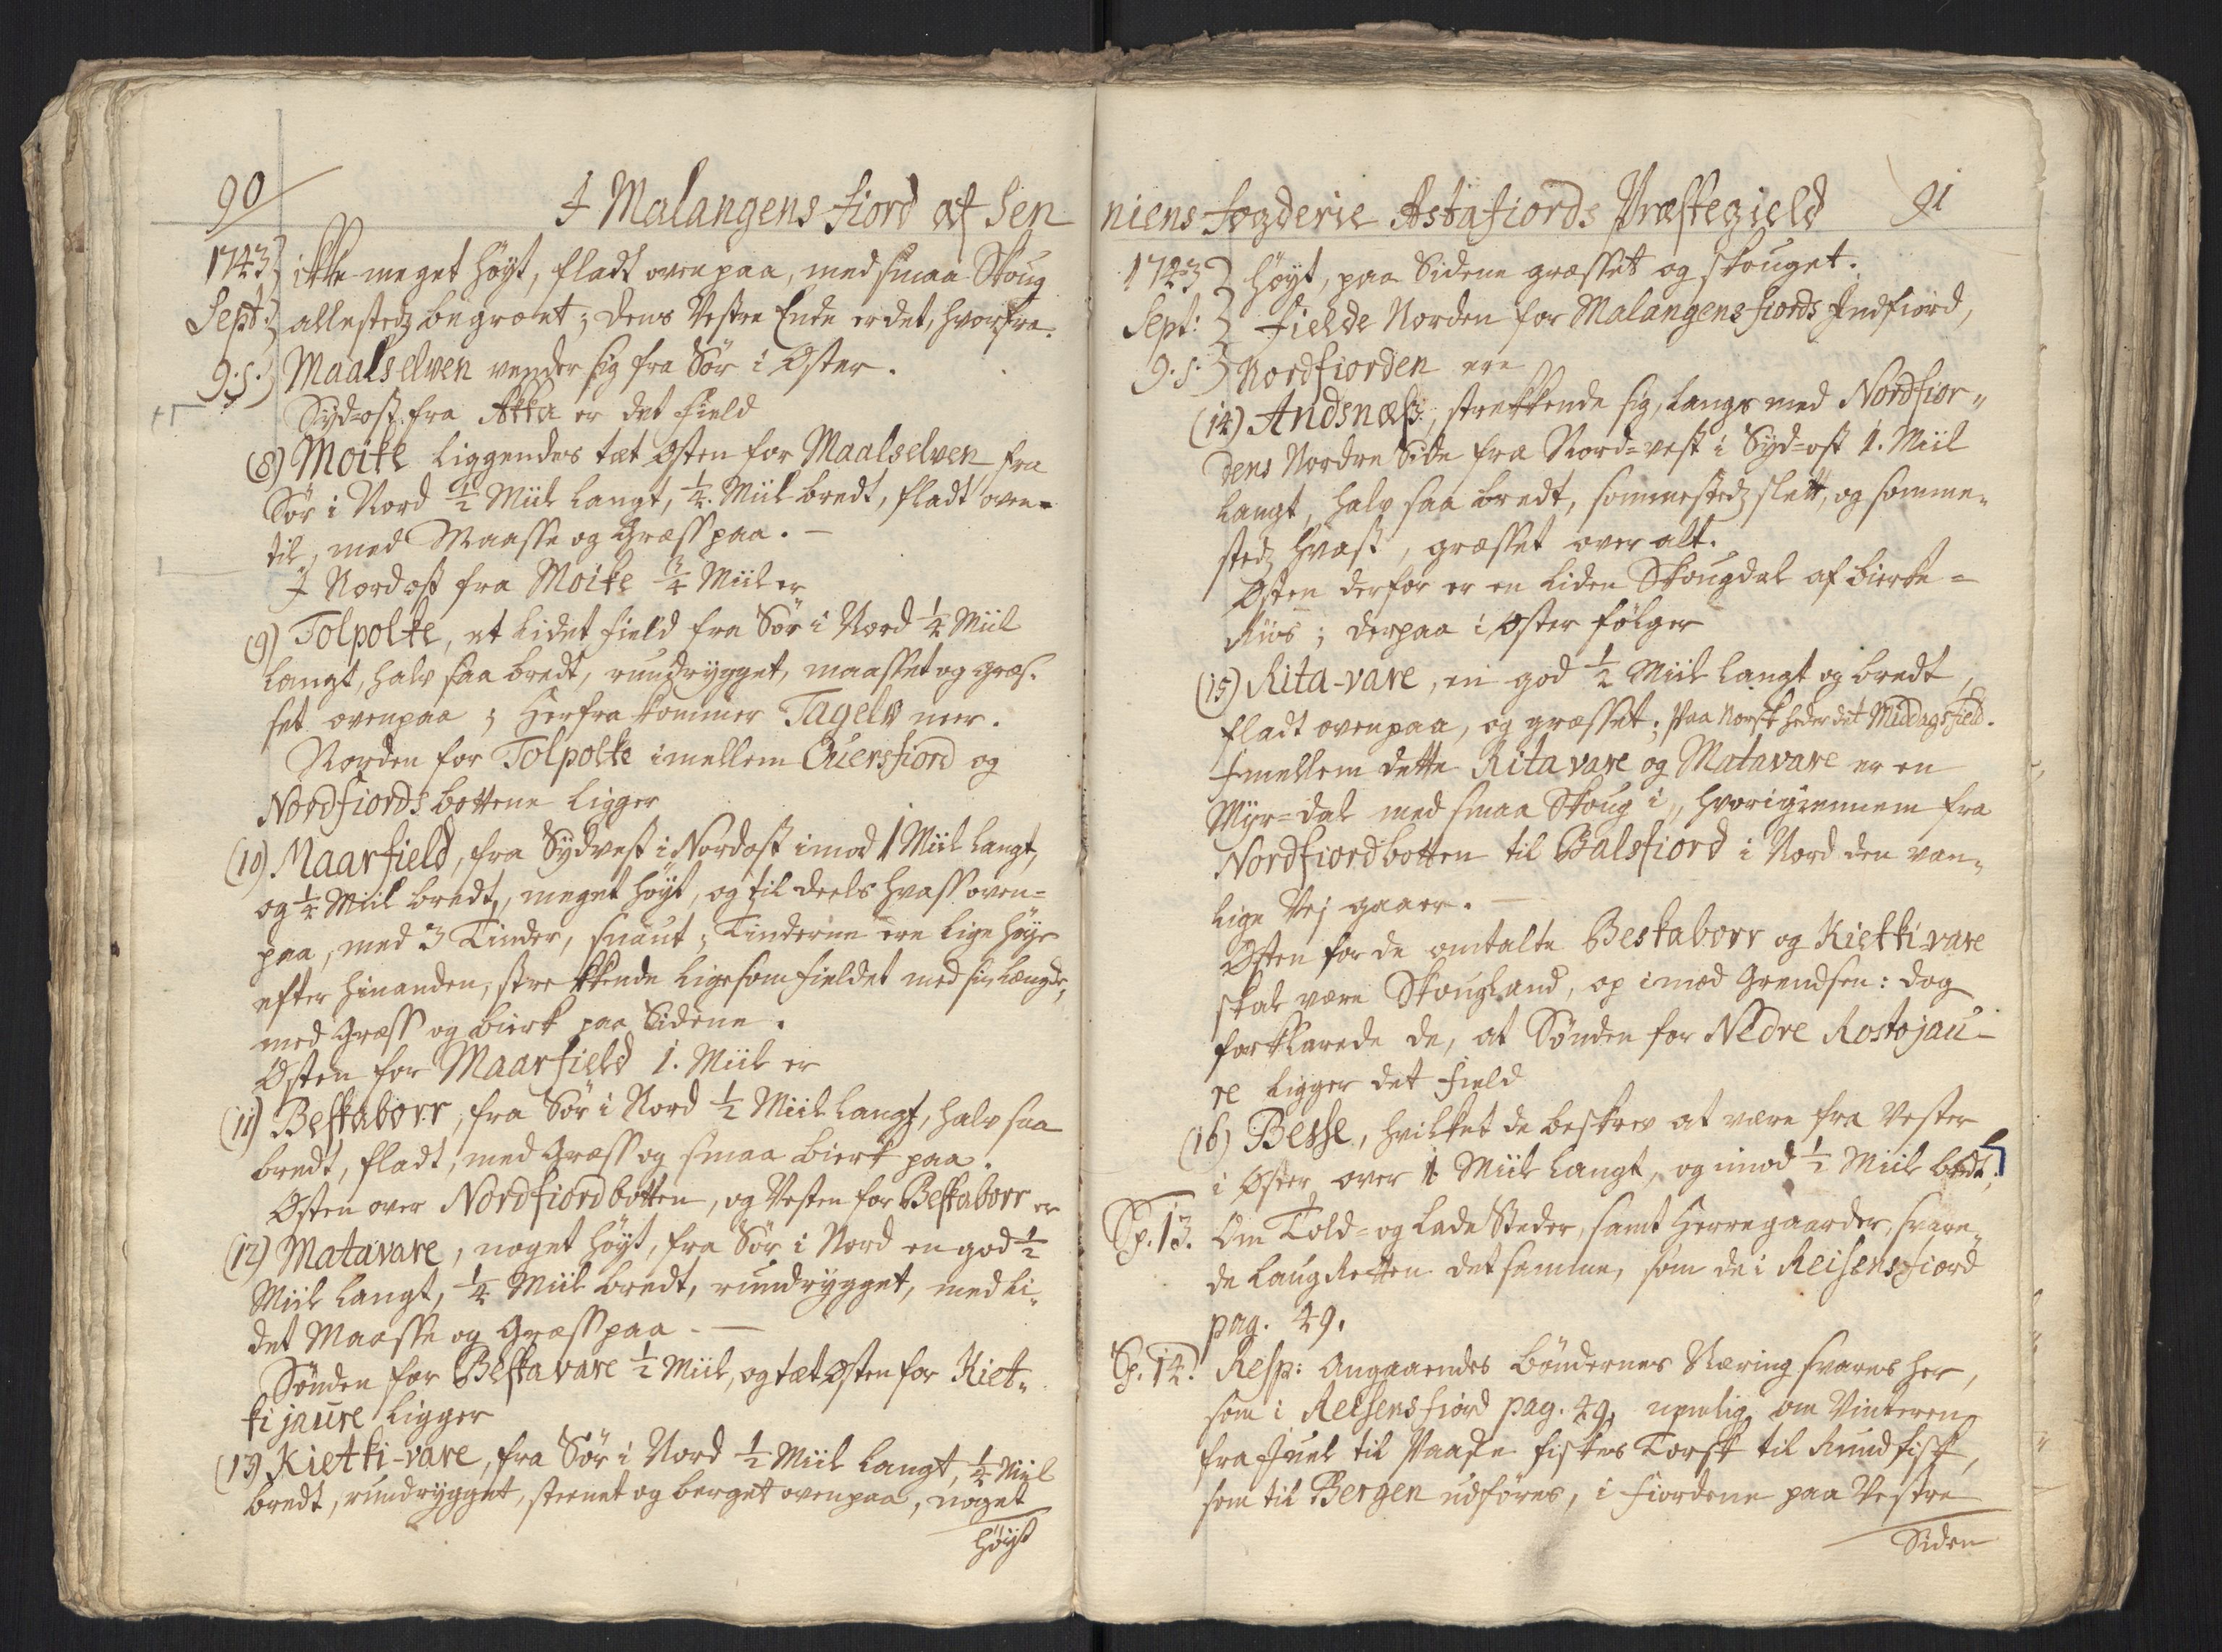 90
I Malangens fiord af Sen
1743 ikke meget høyt, fladt ovenpaa, med smaa Skoug
Sept: allestedz begroet; dens Vestre Ende er det, hvorfra
9. s. Maalselven vender sig fra Sør i Øster.
Syd-ost fra Akka er det field
(8) Moike liggendes tæt Østen for Maalselven fra
Sør i Nord ½ Miil langt, ¼ Miil bredt, fladt oven-
til, med Maasse og Græss paa. —
I Nordost fra Moike ¾ Miil er
(9) Tolpolke, et lidet field fra Sør i Nord ¼ Miil
langt, halv saa bredt, rundrygget, maasset og græs-
set ovenpaa; Herfra kommer Tagelv neer.
Norden for Tolpolke imellem Øuersfiord og
Nordfiords bottene ligger
(10) Maarfield, fra Sydvest i Nordost imod 1 Miil langt,
og ½ Miil bredt, meget høyt, og til deels hvass oven-
paa, med 3 Tinder, snaut; Tinderne ere lige høye
efter hinanden, strekkende ligesom fieldet med sin længde,
med Græss og bierk paa Sidene.
Østen for Maarfield 1. Miil er
(11) Beskaborr, fra Sør i Nord ½ Miil langt, halv saa
bredt, fladt, med Græss og smaa bierk paa.
Østen over Nordfiordbotten, og Vesten for Beskaborr er
(12) Matavare, noget høyt, fra Sør i Nord en god ½
Miil langt, ¼ Miil bredt, rundrygget, med li-
det Maasse og Græss paa. —
Sønden for Beskavare ½ Miil, og tæt Østen for Kiet-
kijaure ligger
(13) Kietki-vare, fra Sør i Nord ½ Miil langt, ¼ Miil
bredt, rundrygget, steenet og berget ovenpaa, noget
høyt
niens fogderie Astafiords Præstegield 91
1743 høyt, paa Sidene græsset og skouget.
Sept: Fielde Norden for Malangens fiords Indfiord,
9. s. Nordfiorden ere
(14) Andsnæss, strekkende sig, langs med Nordfior-
dens Nordre Side fra Nord-vest i Syd-ost 1. Miil
langt, halv saa bredt, sommestedz slett, og somme-
stedz hvast, græsset over alt.
Østen derfor er en liden Skougdal af bierke-
Riis; derpaa i Øster følger
(15) Rita-vare, en god ½ Miil langt og bredt,
fladt ovenpaa, og græsset; paa Norsk heder det Middagsfield.
Imellem dette Rita vare og Matavare er en
Myr-dal med smaa Skoug i, hvorigiennem fra
Nordfiordbotten til Balsfiord i Nord den van-
lige Vej gaaer. —
Østen for de omtalte Beskaborr og Kietkivare
skal være Skougland, op imod Grendsen: dog
forklarede de, at Sønden for Nedre Rostojau-
re ligger det field
(16) Besse, hvilket de beskrev at være fra Vester
i Øster over 1 Miil langt, og imod ½ Miil bredt,
Sp. 13. Om Told- og Lade Steder, samt Herregaarder, svare-
de LaugRetten det samme, som de i Reisensfiord
pag. 49.
Sp. 14. Resp: Angaaendes bøndernes Næring svares her,
som i Reisensfiord pag. 49, nemlig om Vinteren
fra Juel til Paaske fiskes Torsk til Rundfisk,
som til Bergen udføres, i fiordene paa Vestre
Siden